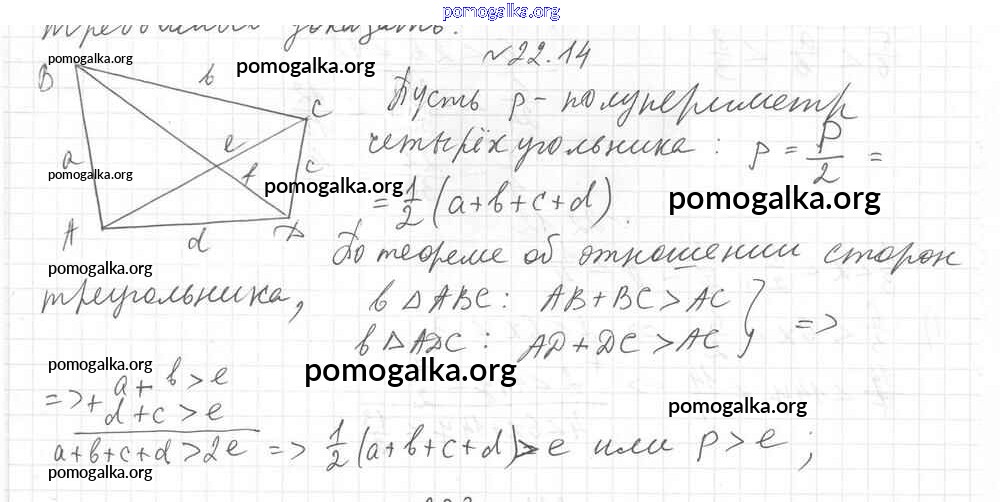 pomogalka.org
требовалось доказать.
№22.14
pomogalka.org
pomogalka.org
B
b
C
a
e
f
c
A
d
D
pomogalka.org
pomogalka.org
pomogalka.org
Пусть p - полупериметр
четырёхугольника: p = P/2 =
= 1/2 (a+b+c+d).
pomogalka.org
По теореме об отношении сторон
треугольника, в △ABC: AB+BC>AC } =>
в △ADC: AD+DC>AC
pomogalka.org
pomogalka.org
pomogalka.org
=> + a+b>e
d+c>e
a+b+c+d>2e => 1/2 (a+b+c+d)>e или p>e;
pomogalka.org
pomogalka.org